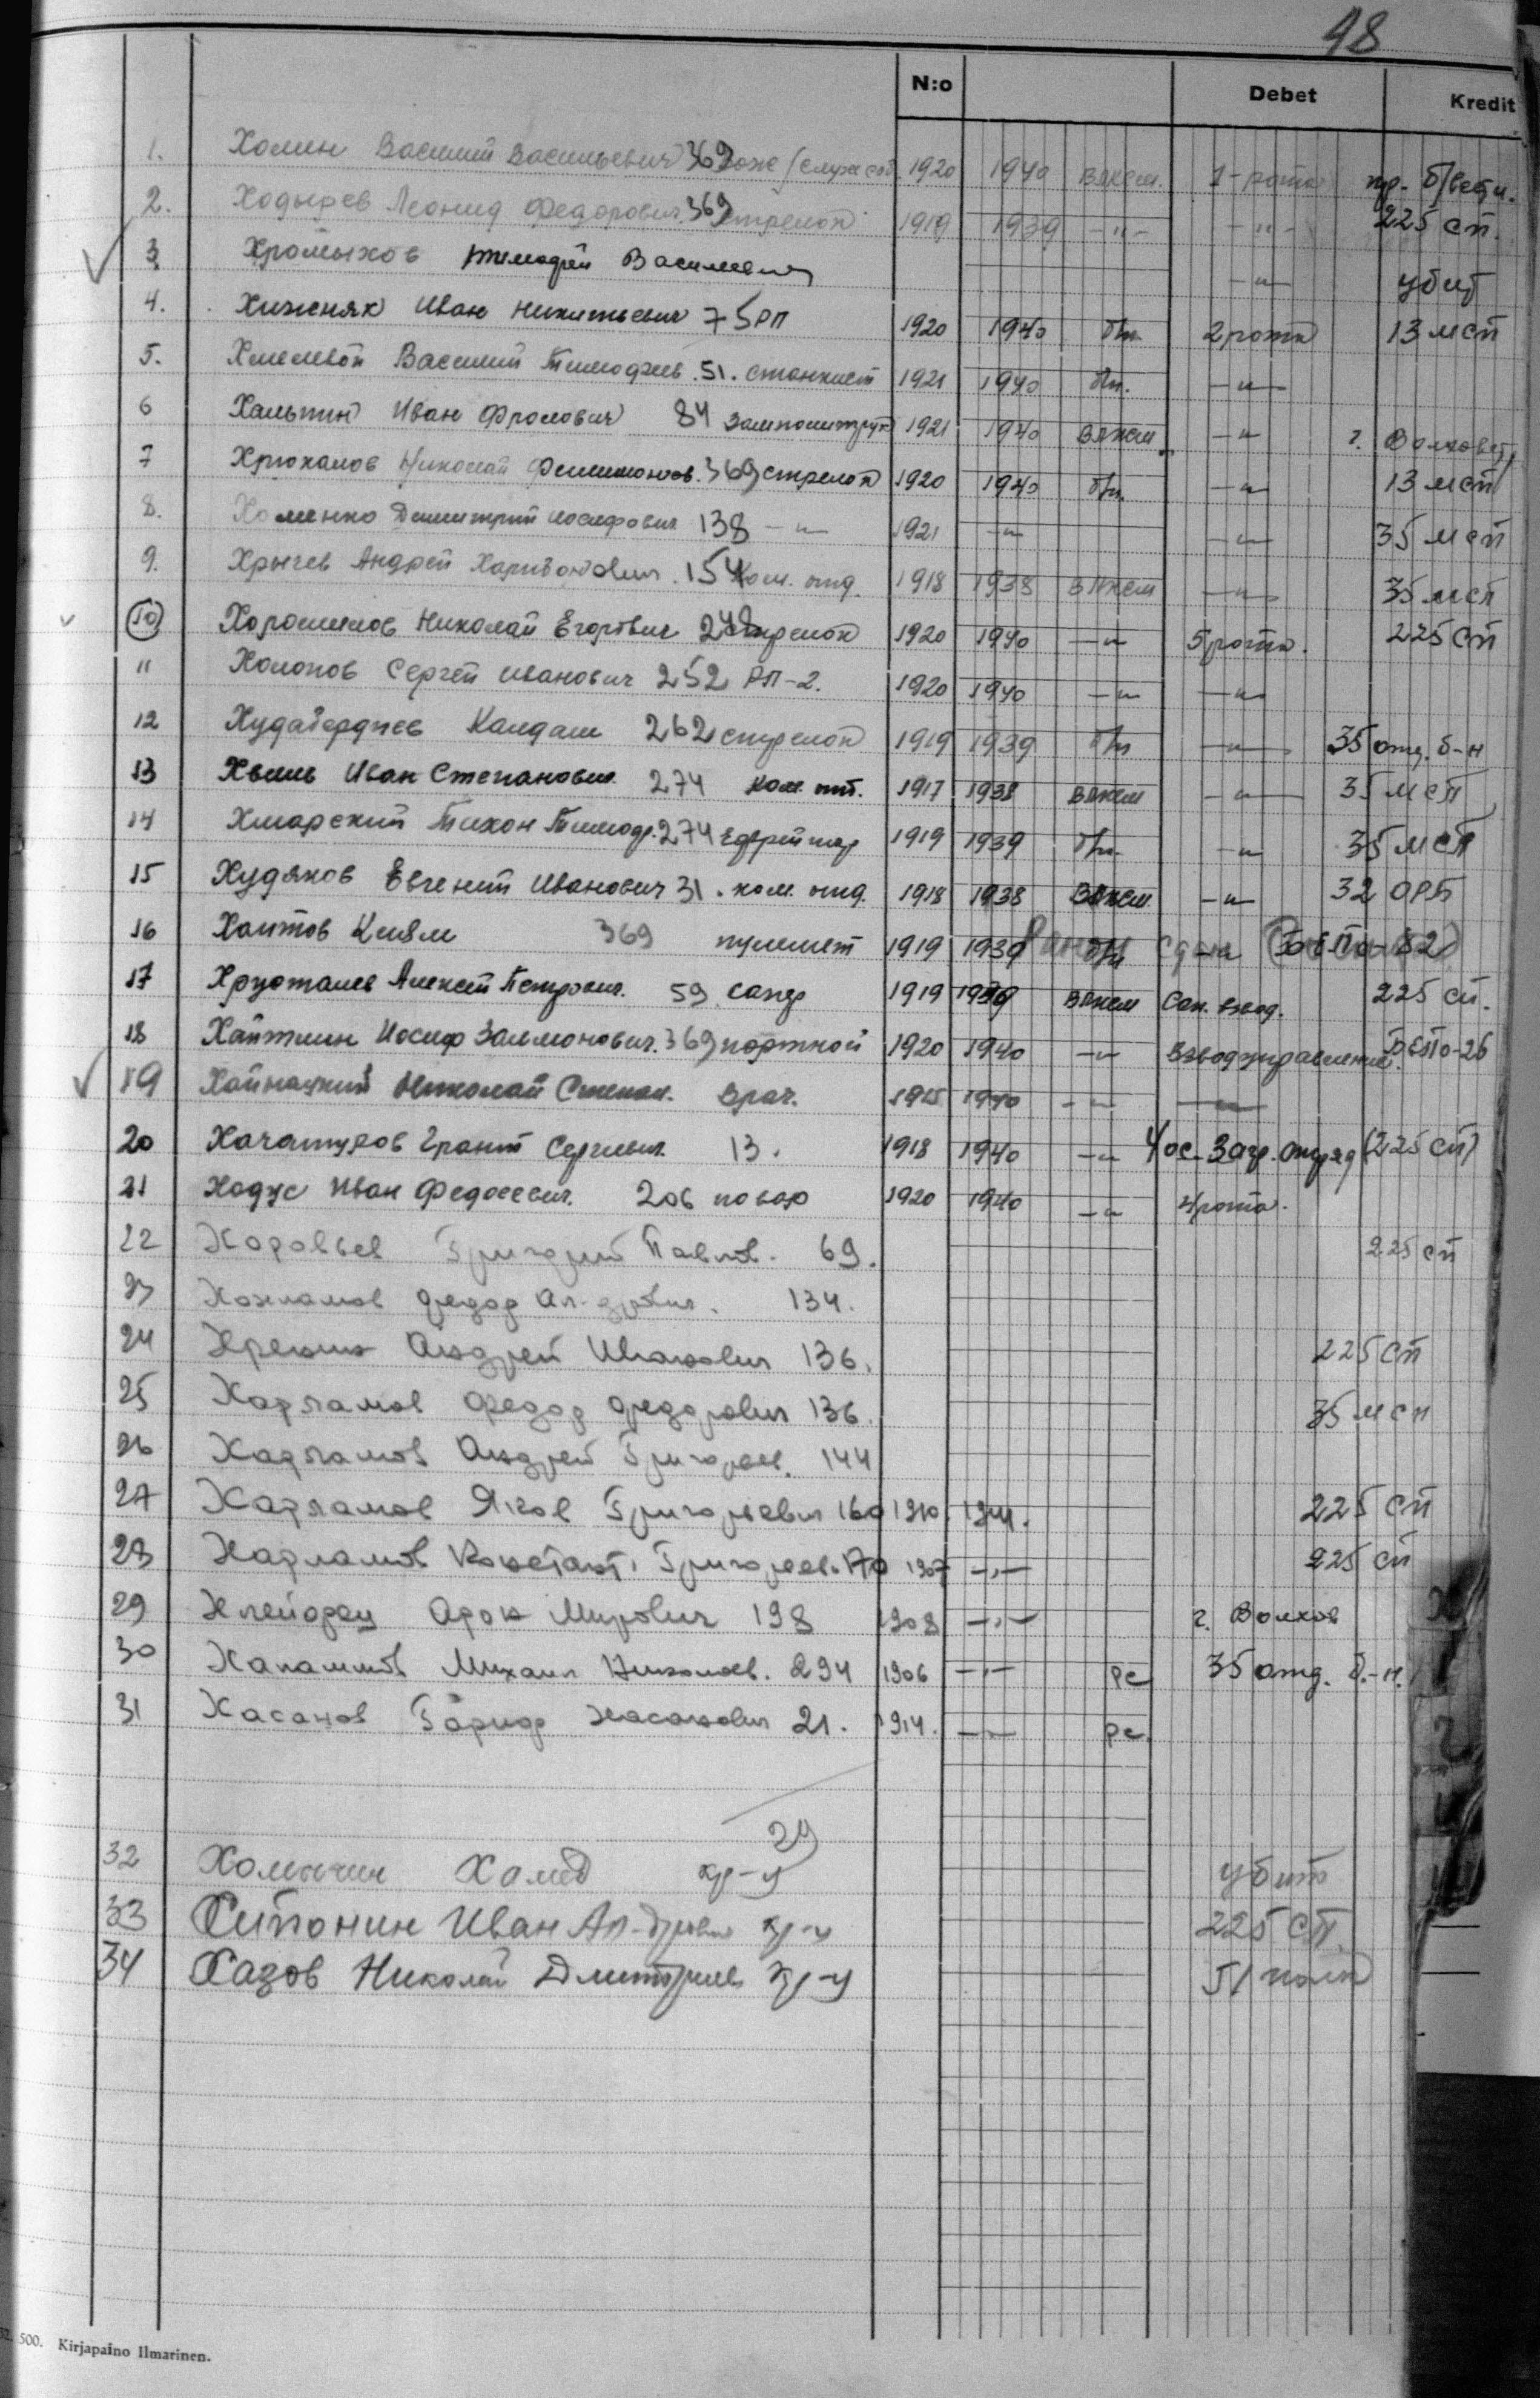 98
N:o Debet Kredit
1. Холин Василий Васильевич 369 1920 1940 влксм. 1-рота пр. б/вести.
2. Ходырев Леонид Федорович 369 стрелок 1919 1939 -"- -"- 225 сп.
3 Хромыхов Тимофей Василиевич -"- убит
4. Хижняк Иван Никитьевич 75 РП 1920 1940 б/п. 2 рота 13 мсп
5. Хмелевой Василий Тимофеев. 51. станкист 1921 1940 б/п. -"-
6 Халыпин Иван Фролович 84 замполитрук 1921 1940 влксм -"- г. Волховец
7 Хрюкалов Николай Филимонов. 369 стрелок 1920 1940 б/п. -"- 13 мсп
8. Хоменко Димитрий Иосифович 138 -"- 1921 -"- -"- 35 мсп
9. Хрычев Андрей Харитонович. 154 ком. отд. 1918 1938 влксм -"- 35 мсп
10 Хорошилов Николай Егорович 248 стрелок 1920 1940 -"- 5 рота. 225 сп
11 Холопов Сергей Иванович 252 РП-2. 1920 1940 -"- -"-
12 Худабердиев Калдаш 262 стрелок 1919 1939 б/п -"- 35 отд. б-н
13 Хвиль Иван Степанович 274 ком. отд. 1917 1938 влксм -"- 35 мсп
14 Хмарский Тихон Тимоф. 274 Ефрейтор 1919 1939 б/п. -"- 35 мсп
15 Худяков Евгений Иванович 31. ком. отд. 1918 1938 влксм -"- 32 ОРБ
16 Хаитов 369 пулемет 1919 1939 б/п -"-
17 Алексей Петрович. 59. сапер 1919 1939 влксм Сап. взвод. 225 сп.
18 Хайтлин Иосиф Залмонович. 369 портной 1920 1940 -"- Взвод управления.
19 Хайнацкий Николай Степан. врач. 1915 1940 -"- -"-
20 Хачатуров Грант Сергеевич. 13. 1918 1940 -"- 4 ос. Загр. отряд (225 сп)
21 Ходус Иван Федосеевич. 206 повар 1920 1940 -"- 4 рота.
22 Григорий Павлов. 69. 225 сп
23 Федор Ал-дрович. 134.
24 Андрей Иванович 136. 225 сп
25 Харламов Федор Федорович 136. 35 мсп
26 Харламов Андрей Григорьев. 144
27 Харламов Яков Григорьевич 160 1910. 1941. 225 сп
28 Харламов Констант. Григорьев. 170 1907 -"- 225 сп
29 Арон Мирович 198 1908 -"- г. Волхов
30 Михаил Николаев. 294 1906 -"- рс 35 отд. б-н.
31 Хасанов Гариф Хасанович 21. 1914. -"- рс.
29
32 Хомычин Хамед кр-ц убит
33 Иван Ал-дрович кр-ц 225 СП.
34 Хазов Николай Дмитриев кр-ц 51 полк
500. Kirjapaino Ilmarinen.